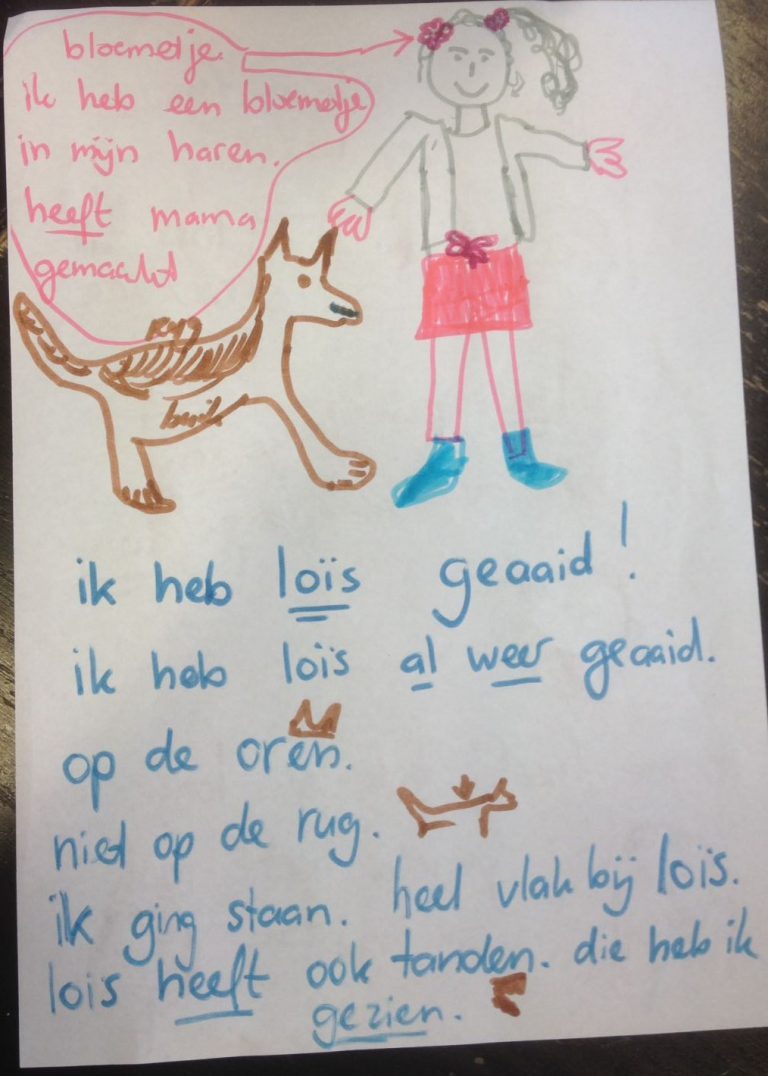 bloemetje
ik heb een bloemetje
in mijn haren.
heeft mama
gemaakt
Rug
buik
ik heb loïs geaaid!
ik heb loïs al weer geaaid.
op de oren.
niet op de rug.
ik ging staan. heel vlak bij loïs.
lois heeft ook tanden. die heb ik
gezien.